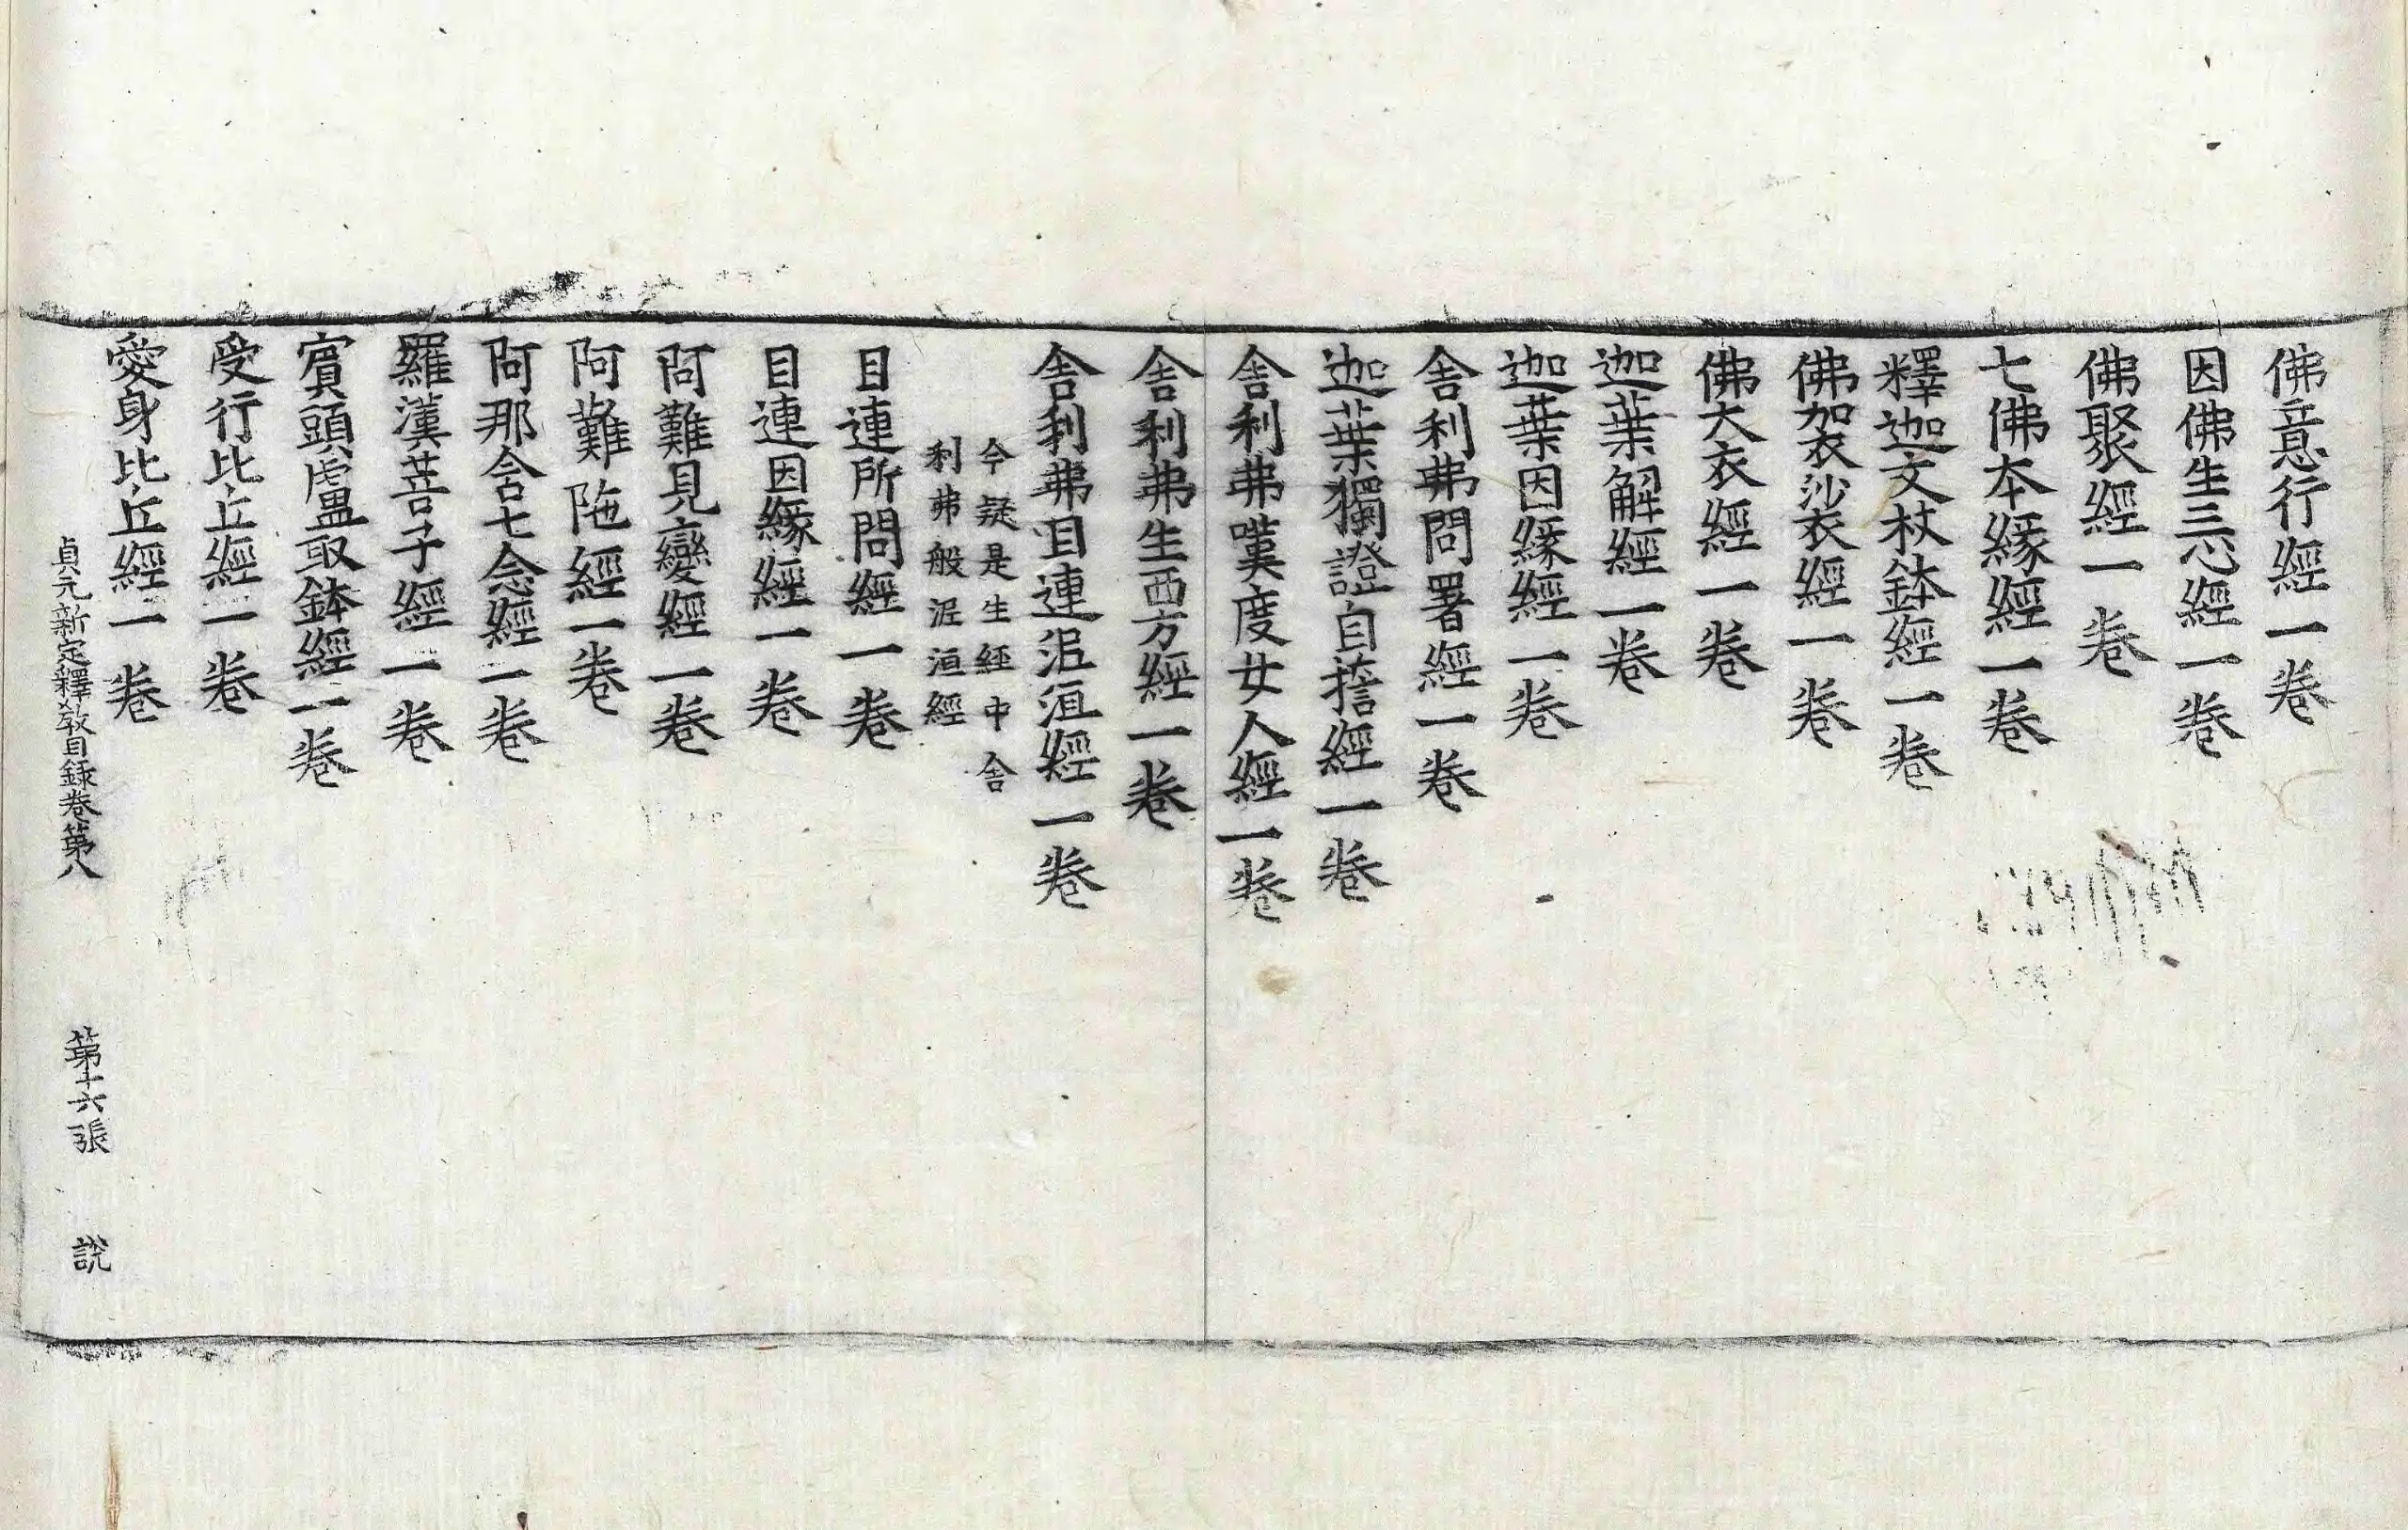 佛意行經一卷
因佛生三心經一卷
佛聚經一卷
七佛本緣經一卷
釋迦文杖鉢經一卷
佛袈裟衣經一卷
佛大衣經一卷
迦葉解經一卷
迦葉因緣經一卷
舍利弗問署經一卷
迦葉獨證自誓經一卷
舍利弗嘆度女人經一卷
舍利弗生西方經一卷
舍利弗目連泥洹經一卷
今疑是生經中舍
利弗般泥洹經
目連所問經一卷
目連因緣經一卷
阿難見變經一卷
阿難陁經一卷
阿那含七念經一卷
羅漢菩子經一卷
賓頭盧取鉢經一卷
受行比丘經一卷
愛身比丘經一卷
貞元新定釋教目録卷第八 第十六張 說